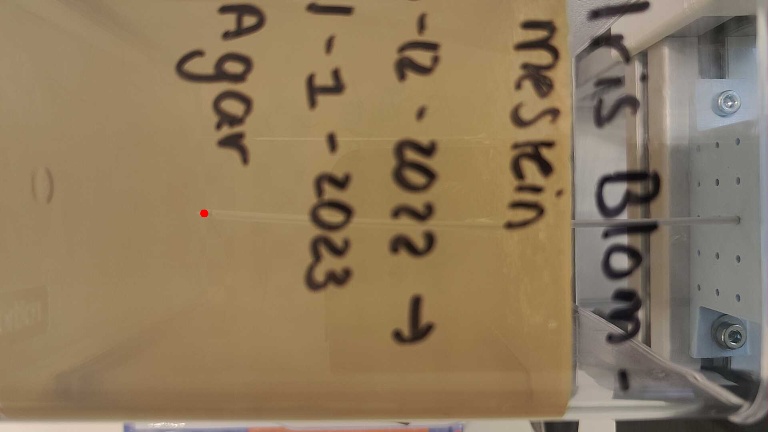 Iris Blom -
meskin
-12-2022 →
1-1-2023
Agar